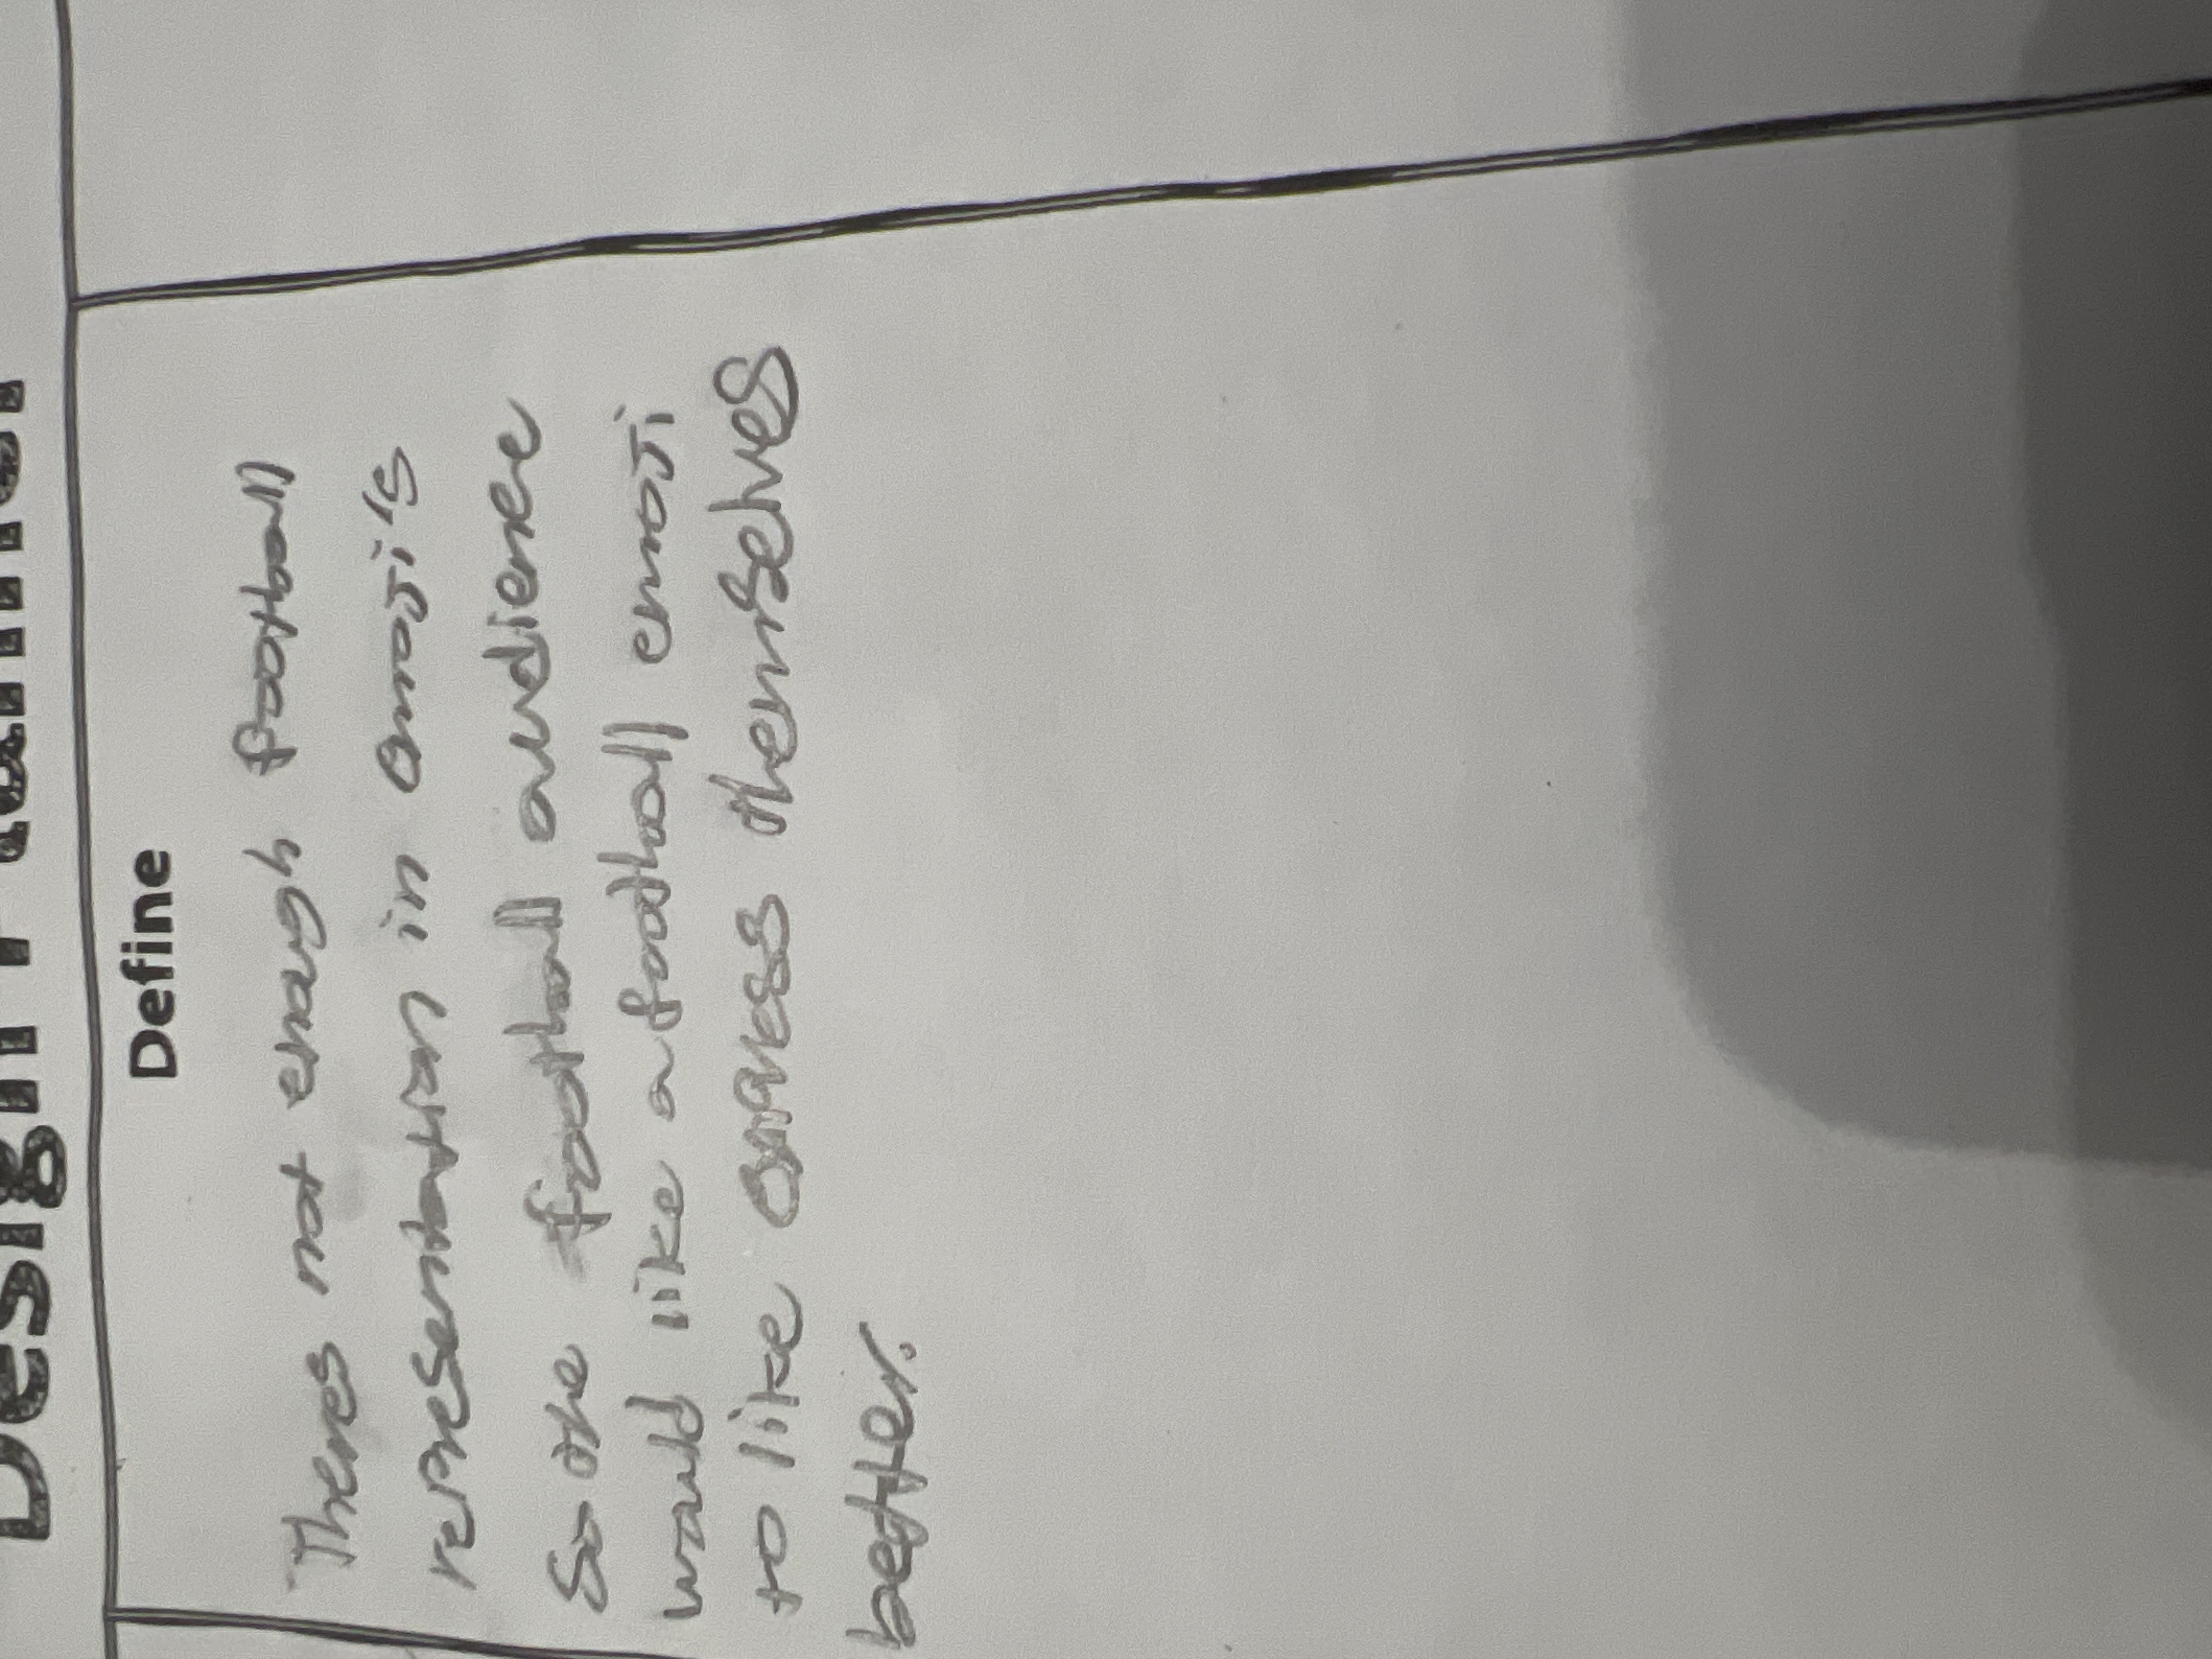 Design Planner
Define
Theres not enough football
representation in emoji's
So the football audience
would like a football emoji
to like express themselves
better.